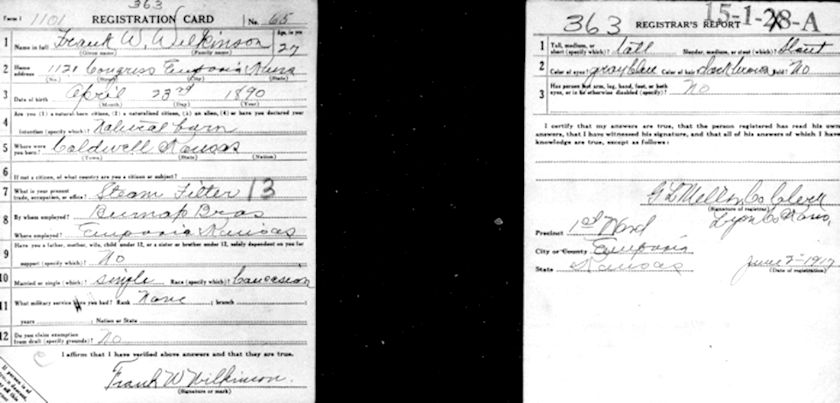 363
Form 1 1101 REGISTRATION CARD No. 65
1 Name in full Frank W. Wilkinson Age, in yrs 27
(Given name) (Family name)
2 Home address 1121 Congress Emporia Kans
(No.) (Street) (City) (State)
3 Date of birth April 23rd 1890
(Month) (Day) (Year)
4 Are you (1) a natural-born citizen, (2) a naturalized citizen, (3) an alien, (4) or have you declared your
intention (specify which)? Natural born
5 Where were you born? Caldwell Kansas
(Town) (State) (Nation)
6 If not a citizen, of what country are you a citizen or subject?
7 What is your present trade, occupation, or office? Steam Fitter 13
8 By whom employed? Burnap Bros
Where employed? Emporia Kansas
9 Have you a father, mother, wife, child under 12, or a sister or brother under 12, solely dependent on you for
support (specify which)? No
10 Married or single (which)? single Race (specify which)? Caucasion
11 What military service have you had? Rank None ; branch
years ; Nation or State
12 Do you claim exemption from draft (specify grounds)? No
I affirm that I have verified above answers and that they are true.
Frank W Wilkinson.
(Signature or mark)
If person is
363 REGISTRAR'S REPORT 15-1-28-A
1 Tall, medium, or short (specify which)? tall Slender, medium, or stout (which)? Stout
2 Color of eyes? gray blue Color of hair? dark brown Bald? No
3 Has person lost arm, leg, hand, foot, or both eyes, or is he otherwise disabled (specify)? No
I certify that my answers are true, that the person registered has read his own
answers, that I have witnessed his signature, and that all of his answers of which I have
knowledge are true, except as follows:
Co Clerk
(Signature of registrar)
Precinct 1st Ward Lyon Co Kans,
City or County Emporia
State Kansas June 1917
(Date of registration)